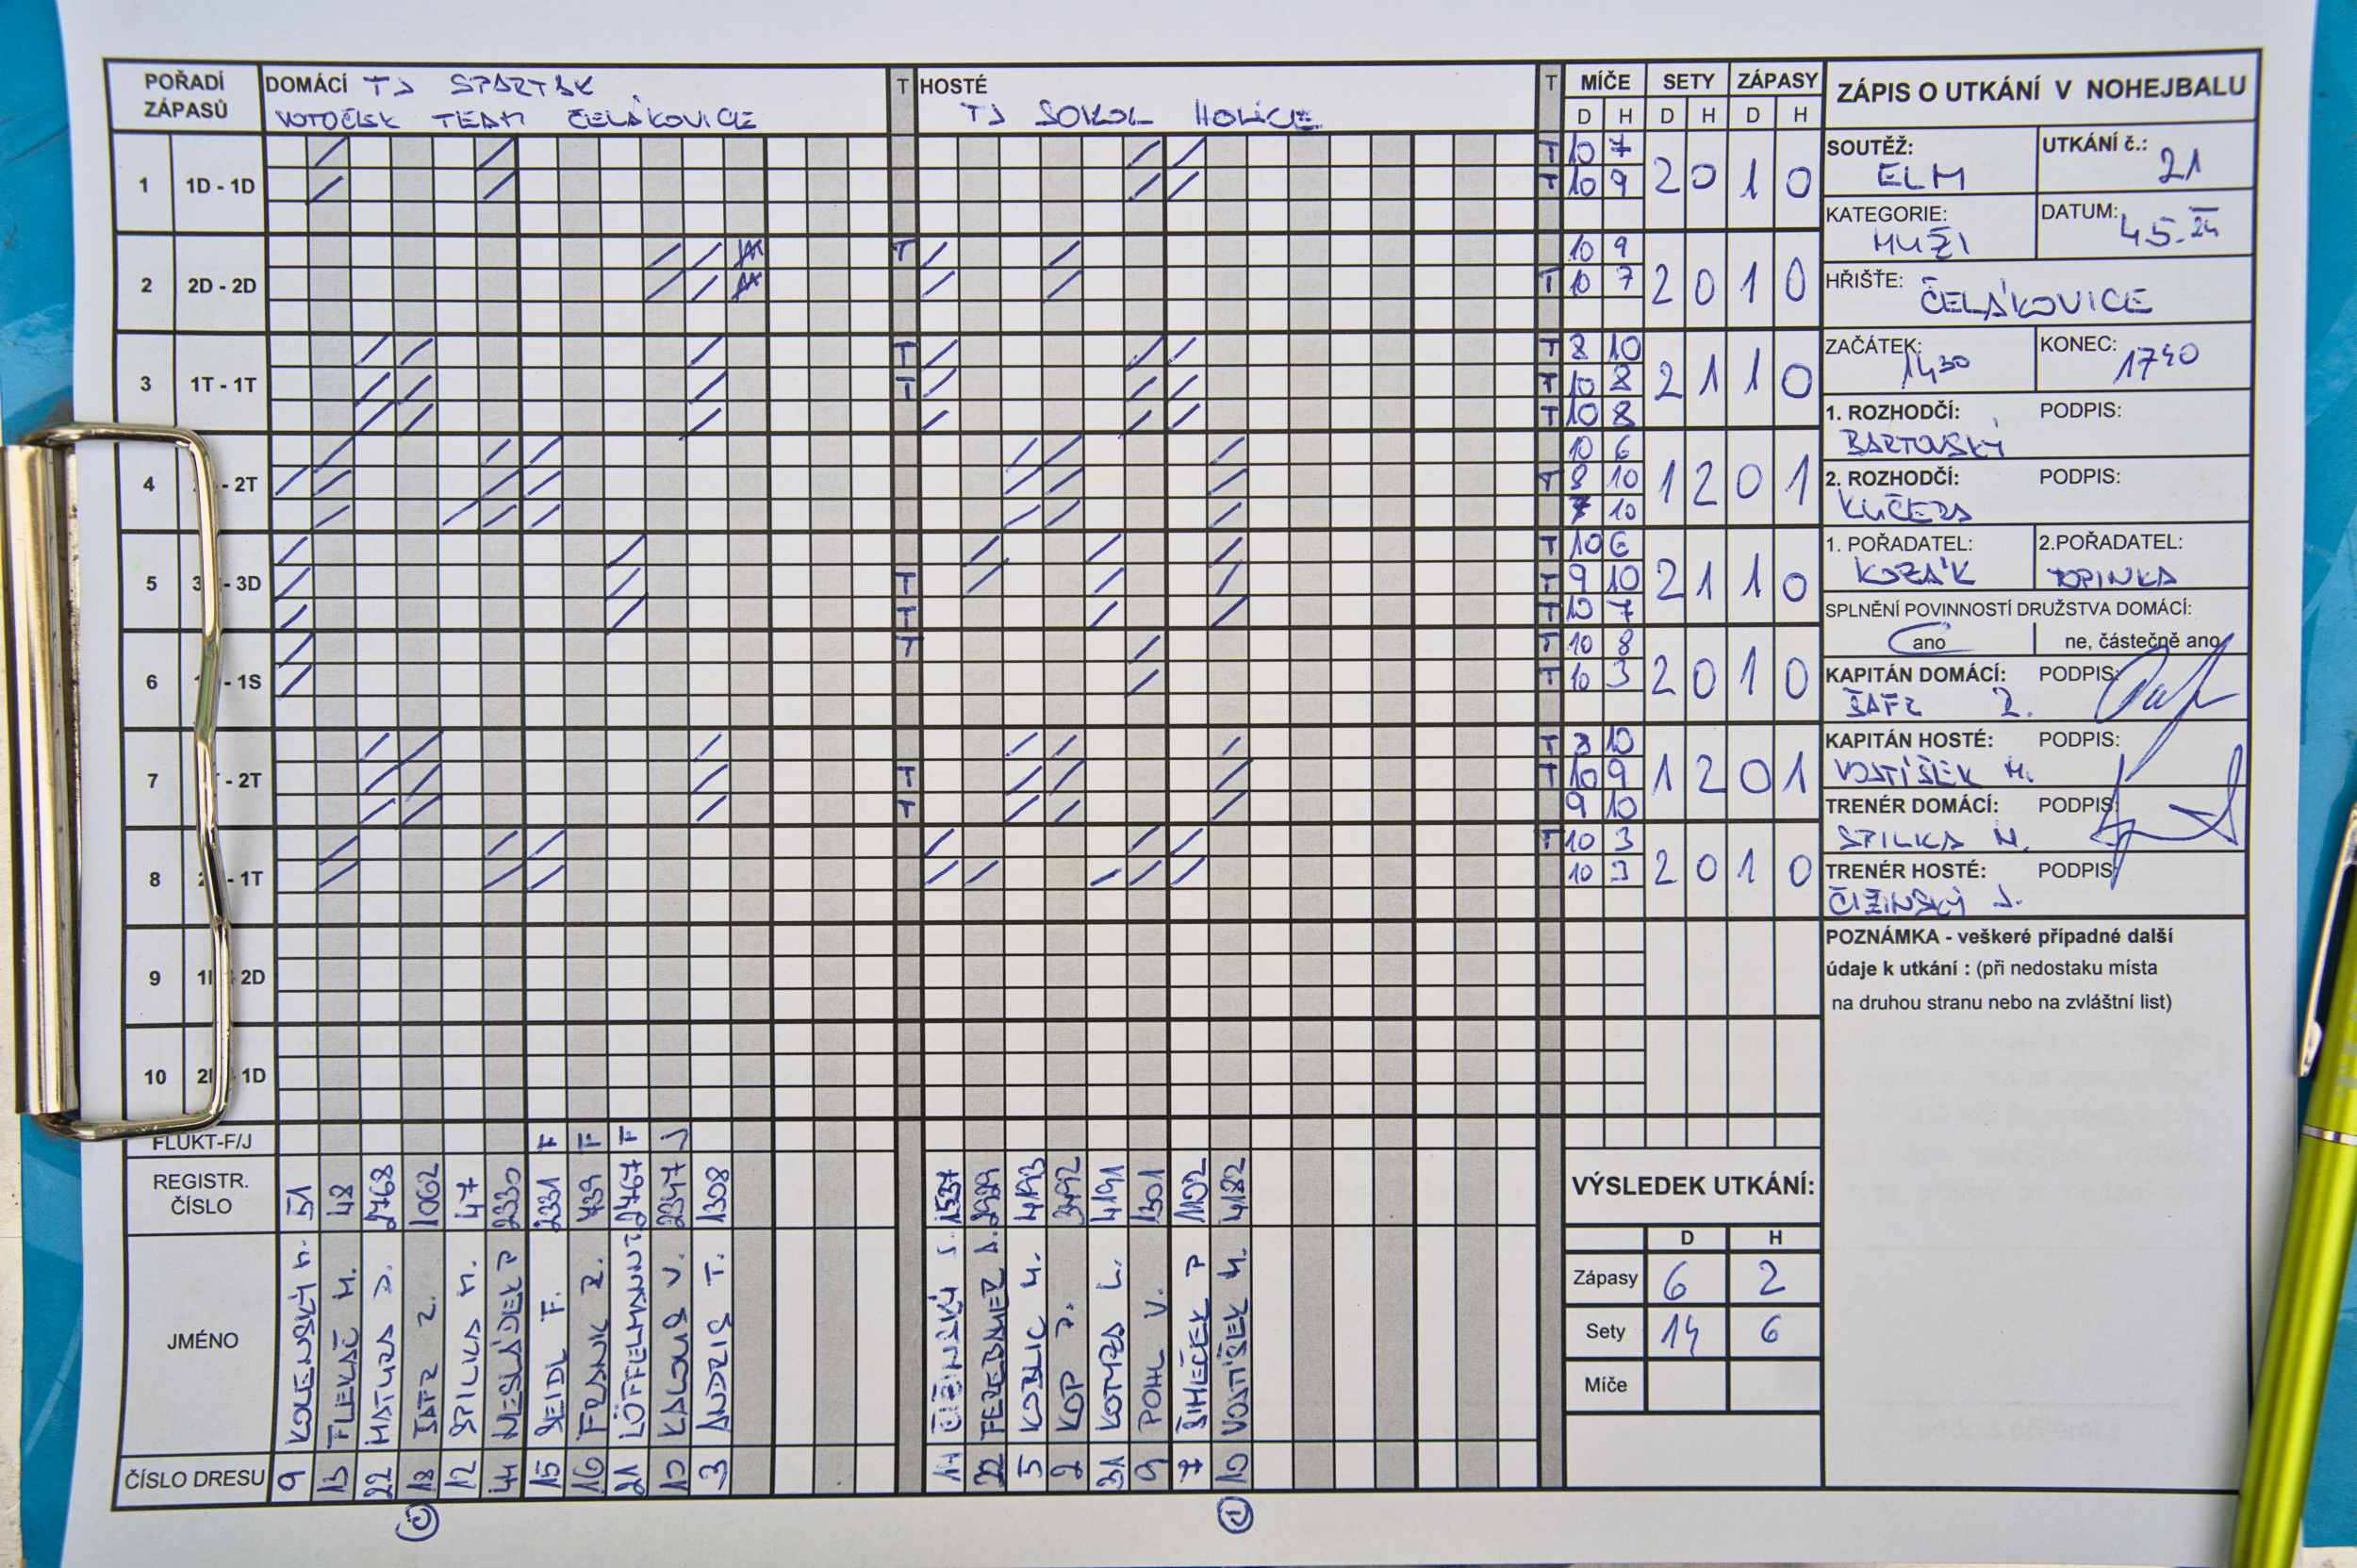 POŘADÍ ZÁPASŮ
DOMÁCÍ TJ SPARTAK
VOTOČEK TEAM ČELÁKOVICE
T
HOSTÉ
TJ SOKOL HOLICE
T
MÍČE SETY ZÁPASY
D H D H D H
1 1D - 1D T 10 7 2 0 1 0
T 10 9
2 2D - 2D T 10 9 2 0 1 0
T 10 7
3 1T - 1T T T 8 10 2 1 1 0
T T 10 8
T 10 8
4 - 2T 10 6 1 2 0 1
T 8 10
7 10
5 3 - 3D T 10 6 2 1 1 0
T T 9 10
T T 10 7
6 - 1S T T 10 8 2 0 1 0
T 10 3
7 - 2T T 8 10 1 2 0 1
T T 10 9
T 9 10
8 2 - 1T T 10 3 2 0 1 0
10 3
9 1 2D
10 2 1D
FLUKT-F/J F F F J
REGISTR. ČÍSLO
51 48 2768 1062 47 2330 2331 439 2467 2347 1308
1537 2939 4193 3492 4191 1301 1102 4182
JMÉNO
KOLENSKÝ M.
FLEKAČ M.
MATURA J.
ŠAFR Z.
SPILKA M.
NESLÁDEK P
SEIDL F.
FRANK R.
LÖFFELMANN T.
KALOUS V.
ANDRIS T.
ČIŽINSKÝ J.
FEREBAUER D.
KOBLIC M.
KOP J.
KOTYZA L.
POHL V.
ŠIMEČEK P
VOSTIŠEK M.
ČÍSLO DRESU
9 13 22 18 12 44 15 16 21 10 3
14 22 5 2 31 9 7 10
ZÁPIS O UTKÁNÍ V NOHEJBALU
SOUTĚŽ: ELM
UTKÁNÍ č.: 21
KATEGORIE: MUŽI
DATUM: 4.5.24
HŘIŠTE: ČELÁKOVICE
ZAČÁTEK: 14 30
KONEC: 17 40
1. ROZHODČÍ: PODPIS:
BARTOVSKÝ
2. ROZHODČÍ: PODPIS:
KUČERA
1. POŘADATEL: KOZÁK
2.POŘADATEL: TOPINKA
SPLNĚNÍ POVINNOSTÍ DRUŽSTVA DOMÁCÍ:
ano ne, částečně ano
KAPITÁN DOMÁCÍ: PODPIS:
ŠAFR Z.
KAPITÁN HOSTÉ: PODPIS:
VOSTIŠEK M.
TRENÉR DOMÁCÍ: PODPIS:
SPILKA M.
TRENÉR HOSTÉ: PODPIS:
ČIŽINSKÝ J.
POZNÁMKA - veškeré případné další
údaje k utkání : (při nedostaku místa
na druhou stranu nebo na zvláštní list)
VÝSLEDEK UTKÁNÍ:
D H
Zápasy 6 2
Sety 14 6
Míče